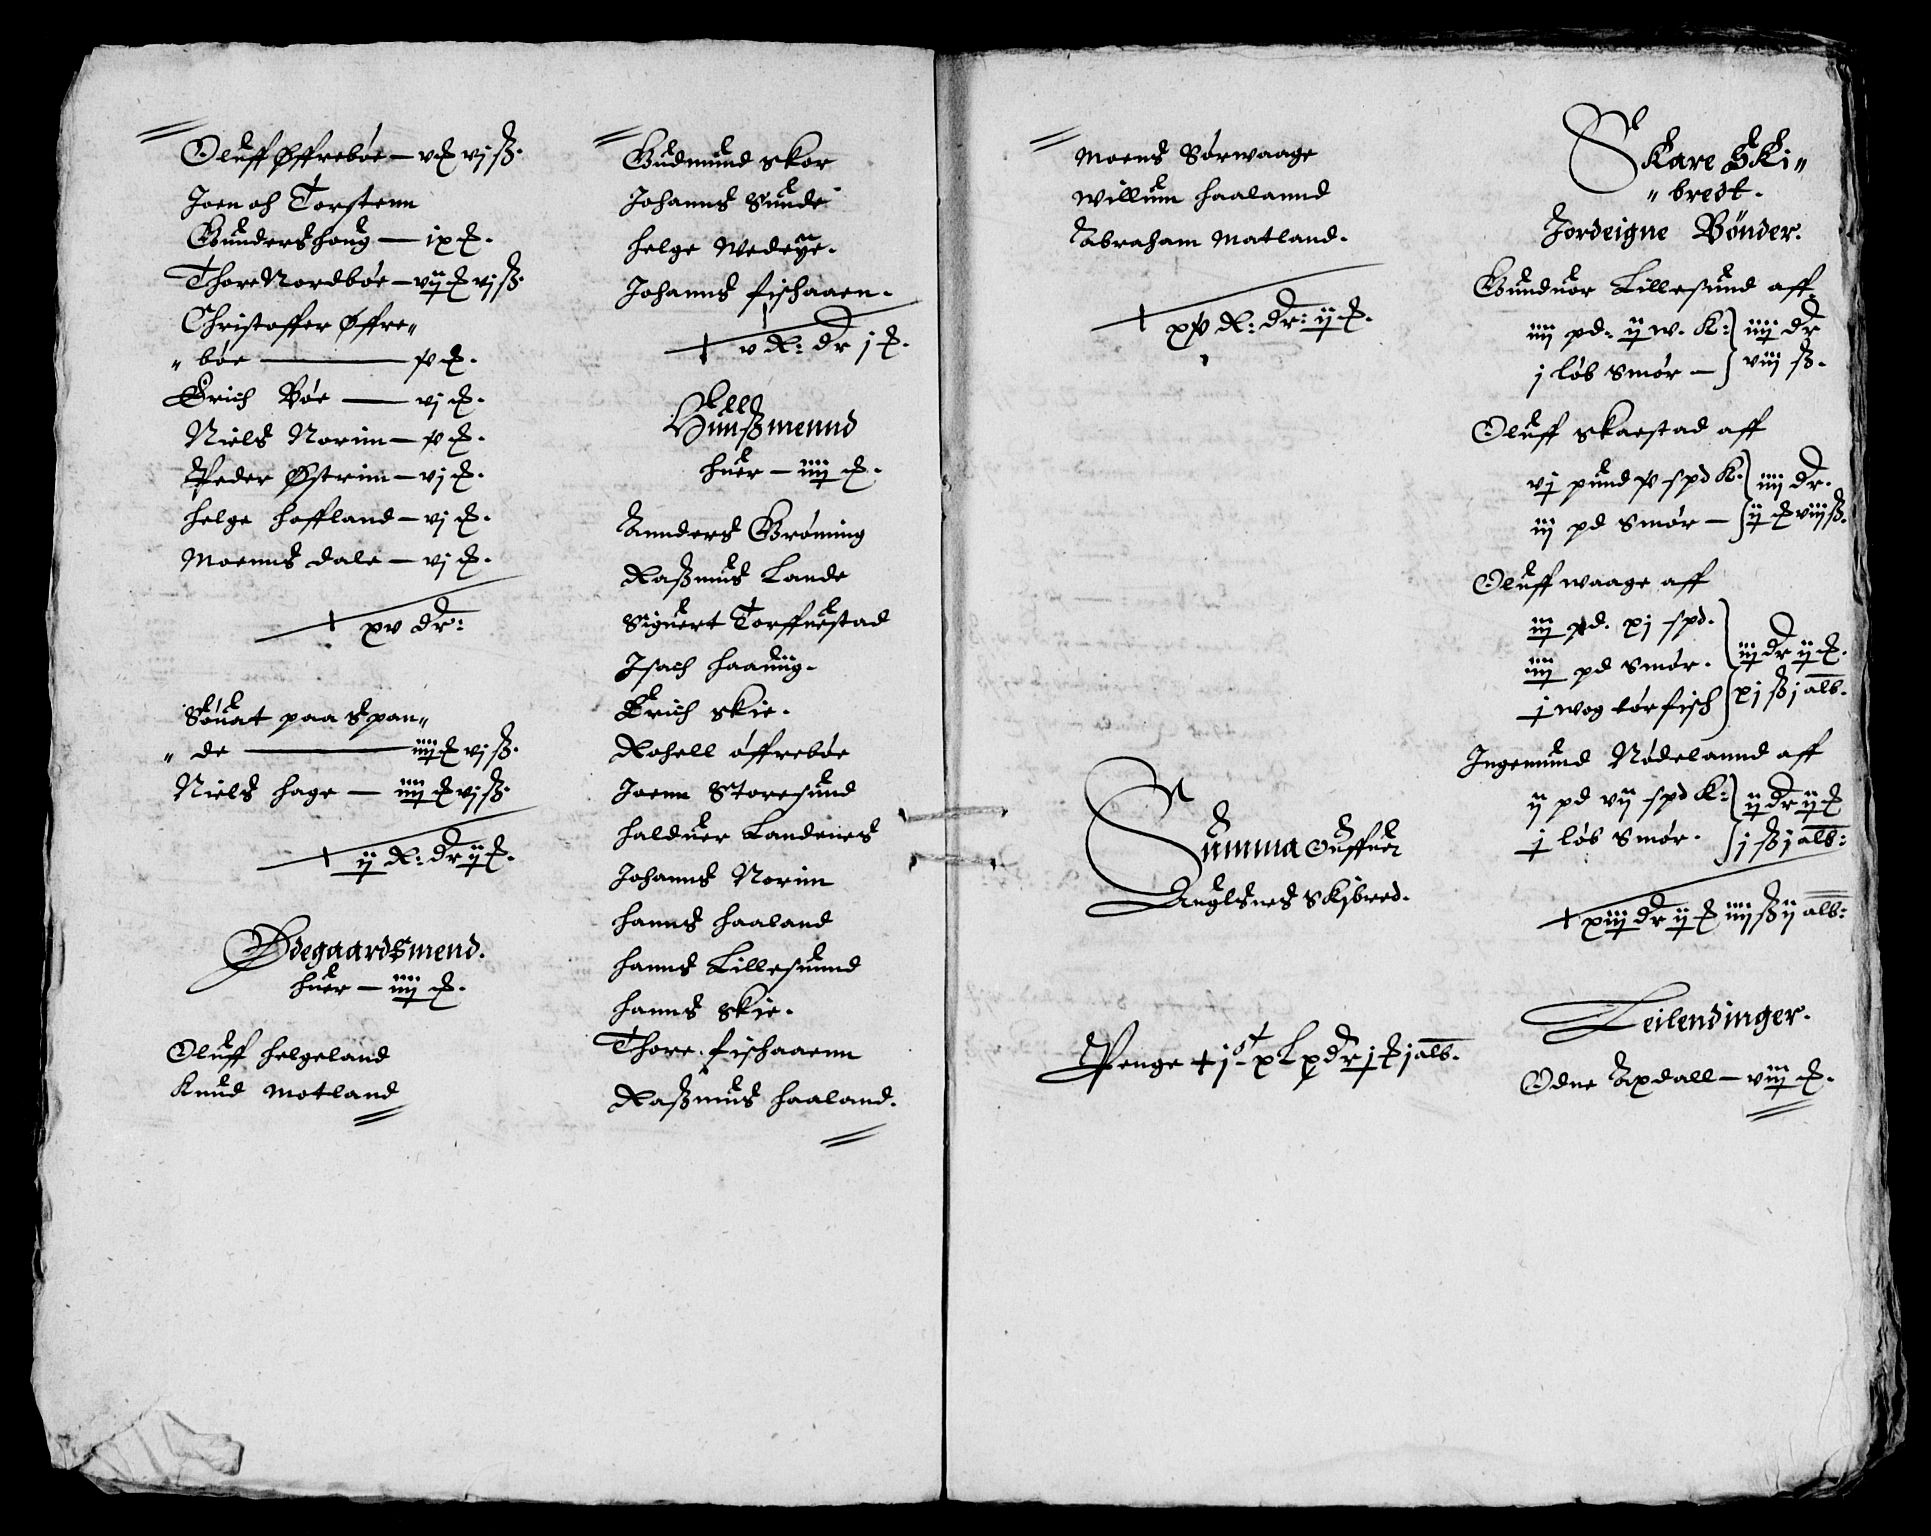 Oluff Øffrebøe – v ₰ vj ß.
Joen och Torstenn
Gunders houg – ix ₰.
Thore Nordbøe – vij ₰ vj ß.
Christoffer Øffre„
„ bøe – v ₰.
Erich Bøe – vj ₰.
Niels Norim – v ₰.
Peder Østrim – vj ₰.
Helge Hoffland – vj ₰.
Moenns dale – vj ₰.
xv dr:
Søuat paa Span„
„ de – iiij ₰ vj ß.
Niels Hage – iiij ₰ vj ß.
ij R: dr ij ₰.
Ødegaardsmend.
huer – iiij ₰.
Oluff Helgeland
Knud Motland
Gudmund Skor
Johanns Sunde
Helge Wedeye.
Johanns Fischaaen.
v R: dr j ₰.
Hunßmennd
huer – iiij ₰.
Annders Grøning
Raßmus Lande
Siguert Torffuestad
Isach Haauiig.
Erich Skie.
Rohell Øffrebøe
Joenn Storesund
Halduer Landenes
Johanns Norim
Hanns Haaland
Hanns Lillesunnd
Hanns Skie.
Thore Fischaaenn
Raßmus Haaland.
Moens Sørwaage
Willum Haalannd
Abraham Matland.
xv R: dr: ij ₰.
Summa Ouffuer
Auglsnes Skibred.
Penge j st x L x dr j ₰ j alb.
Skare Ski„
„ bredt.
Jordeigne Bønder.
Gunduor Lillesund aff
iiij pd. ij w. K: } iiij dr
j løb Smør – } viij ß.
Oluff Skaestad aff
vj pund v spd K. } iiij dr.
iij pd Smør – } ij ₰ viij ß.
Oluff Waage aff
iij pd. xj spd.
iiij pd Smør. } iij dr ij ₰.
j wog tørfisch } xj ß j alb.
Ingemund Nødelannd aff
ij pd vij spd K: } ij dr ij ₰
j løb Smør. } j ß j alb:
xiij dr ij ₰ iiij ß ij alb:
Leilendinger.
Odne Axdall – viij ₰.